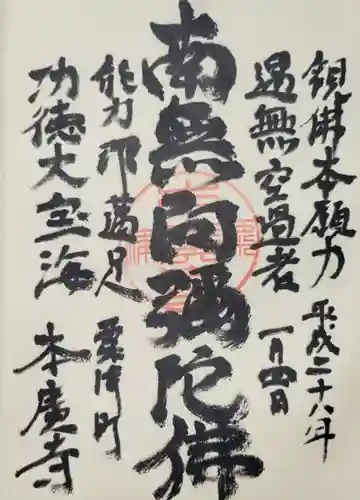 観佛本願力
遇無空過者
平成二十八年
一月四日
南無阿彌陀佛
能令速満足
功徳大宝海
粟津町
本廣寺